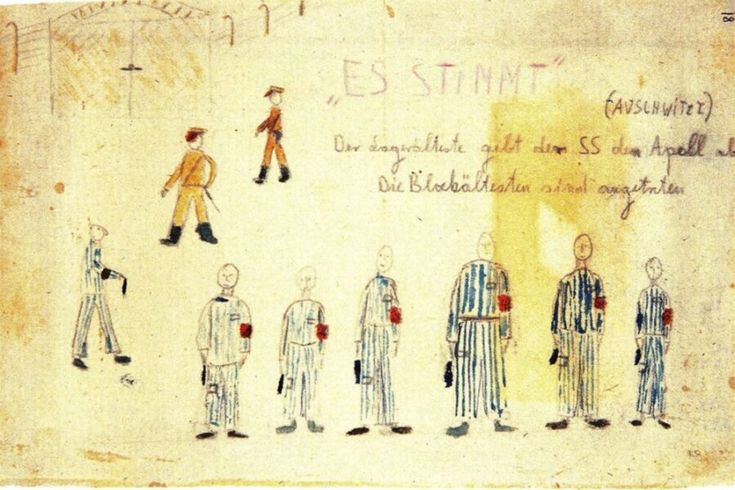 18
„ES STIMMT"
(AUSCHWITZ)
Der Lagerälteste gibt der SS den Apell ab
Die Blockältesten sind angetreten